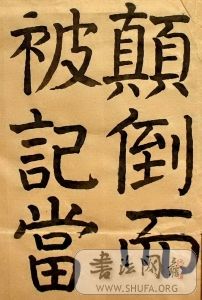 顛倒而
被記當
書法网
WWW.SHUFA.ORG